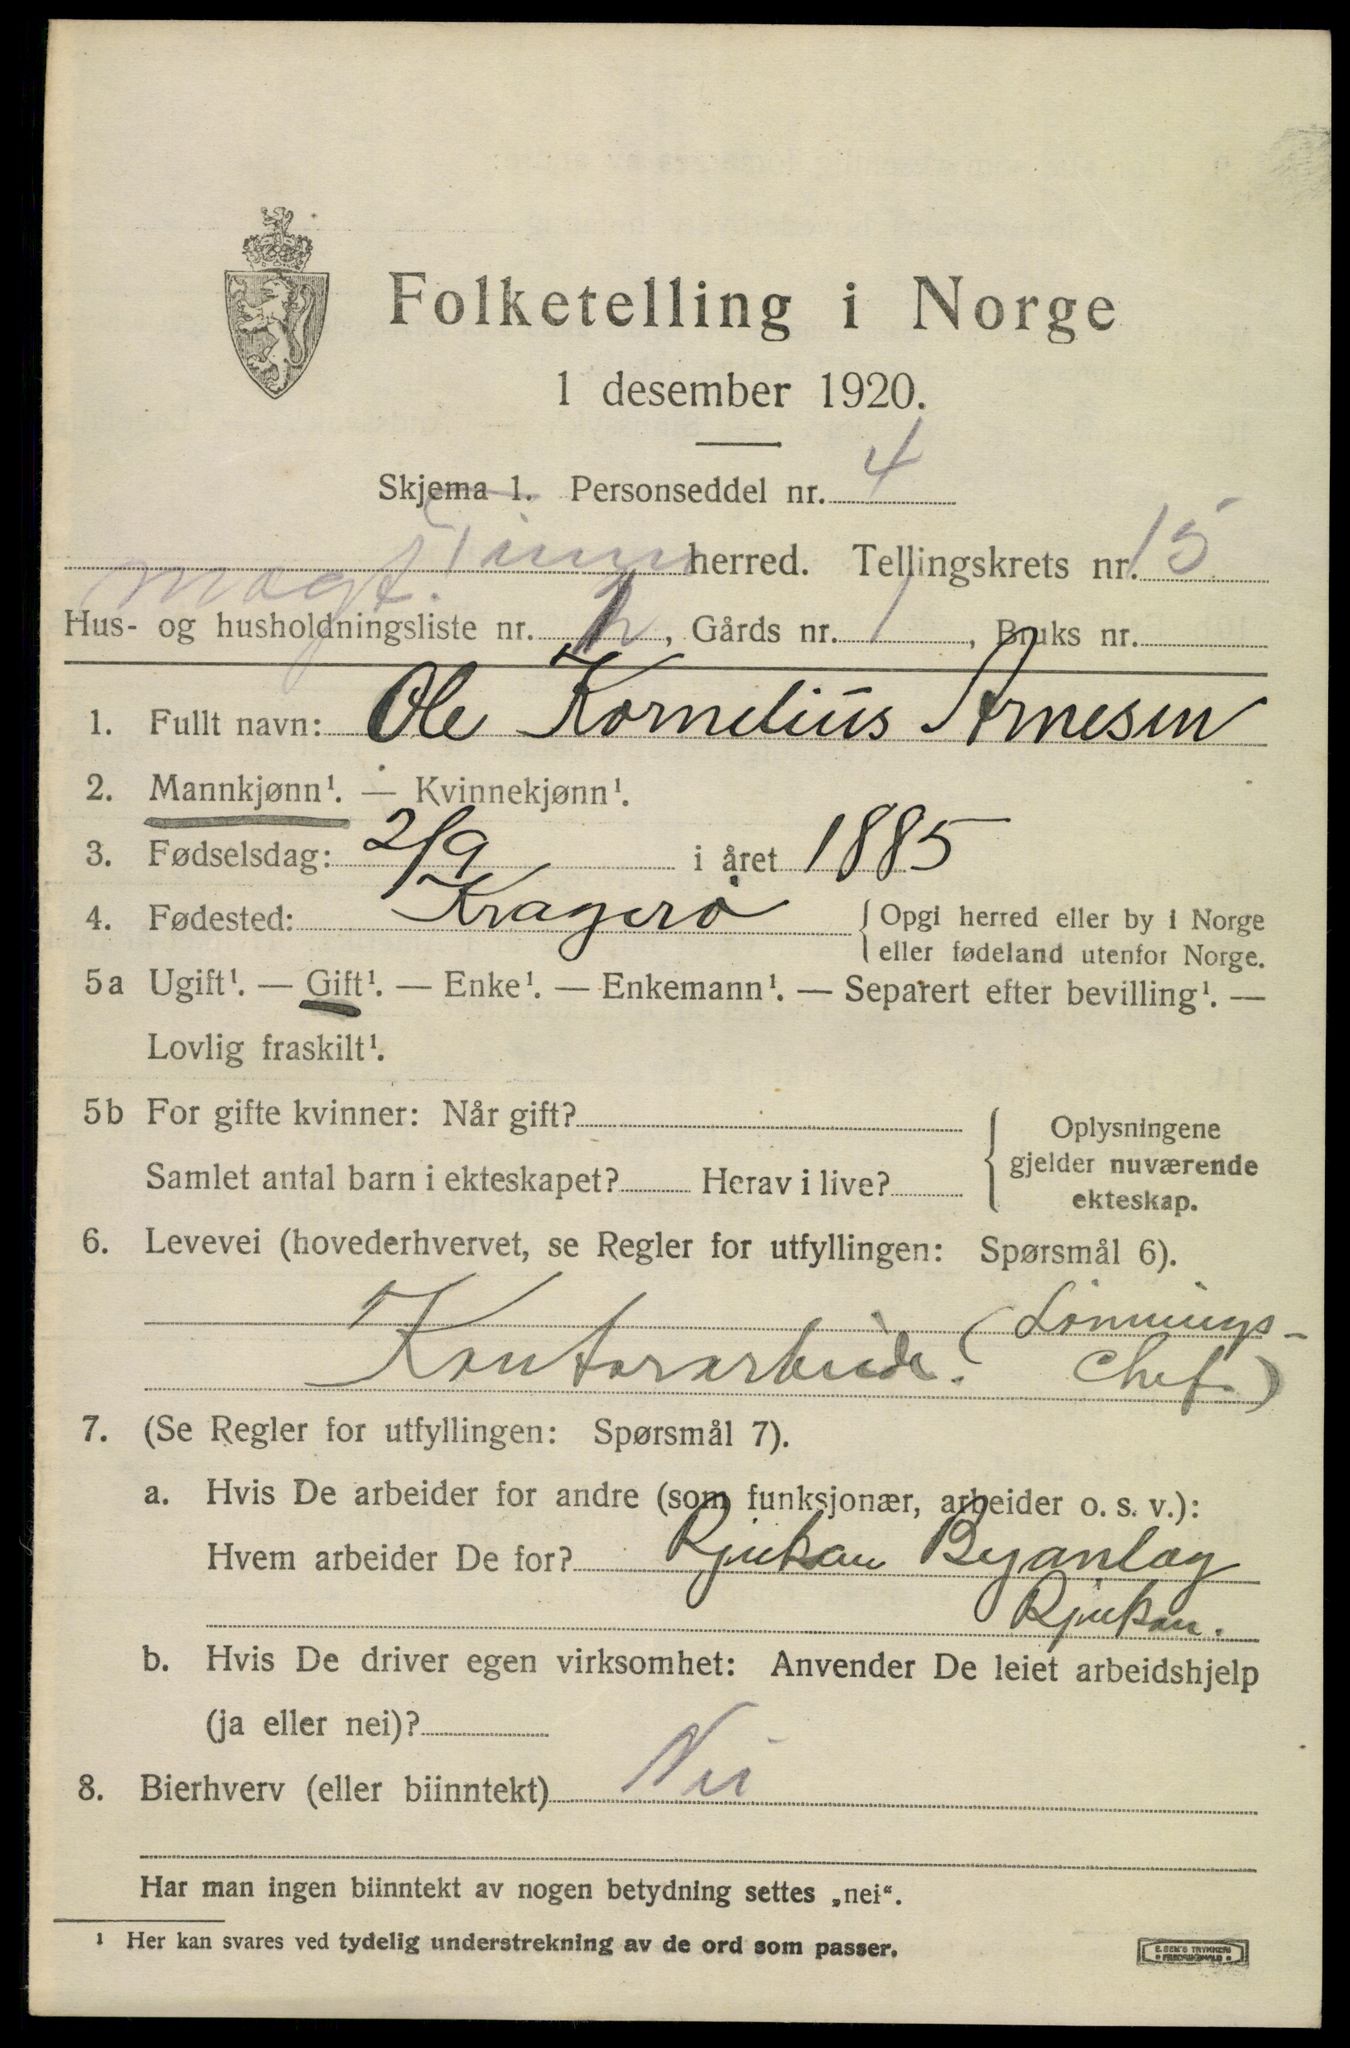 Folketelling i Norge
1 desember 1920.
Skjema 1. Personseddel nr. 4
Tinn herred. Tellingskrets nr. 15
Hus- og husholdningsliste nr. , Gårds nr. 1, Bruks nr.
1. Fullt navn: Ole Kornelius Arnesen
2. Mannkjønn¹. — Kvinnekjønn¹.
3. Fødselsdag: 2/9 i året 1885
4. Fødested: Kragerø {Opgi herred eller by i Norge
eller fødeland utenfor Norge.
5a Ugift¹. — Gift¹. — Enke¹. — Enkemann¹. — Separert efter bevilling¹. —
Lovlig fraskilt¹.
5b For gifte kvinner: Når gift?
Samlet antal barn i ekteskapet? Herav i live?
Oplysningene
gjelder nuværende
ekteskap.
6. Levevei (hovederhvervet, se Regler for utfyllingen: Spørsmål 6).
Kontorarbeide. (Lønnings-
Chef)
7. (Se Regler for utfyllingen: Spørsmål 7).
a. Hvis De arbeider for andre (som funksjonær, arbeider o. s. v.):
Hvem arbeider De for? Rjukan Byanlæg
Rjukan.
b. Hvis De driver egen virksomhet: Anvender De leiet arbeidshjelp
(ja eller nei)?
8. Bierhverv (eller biinntekt) Nei
Har man ingen biinntekt av nogen betydning settes „nei“.
¹ Her kan svares ved tydelig understrekning av de ord som passer.